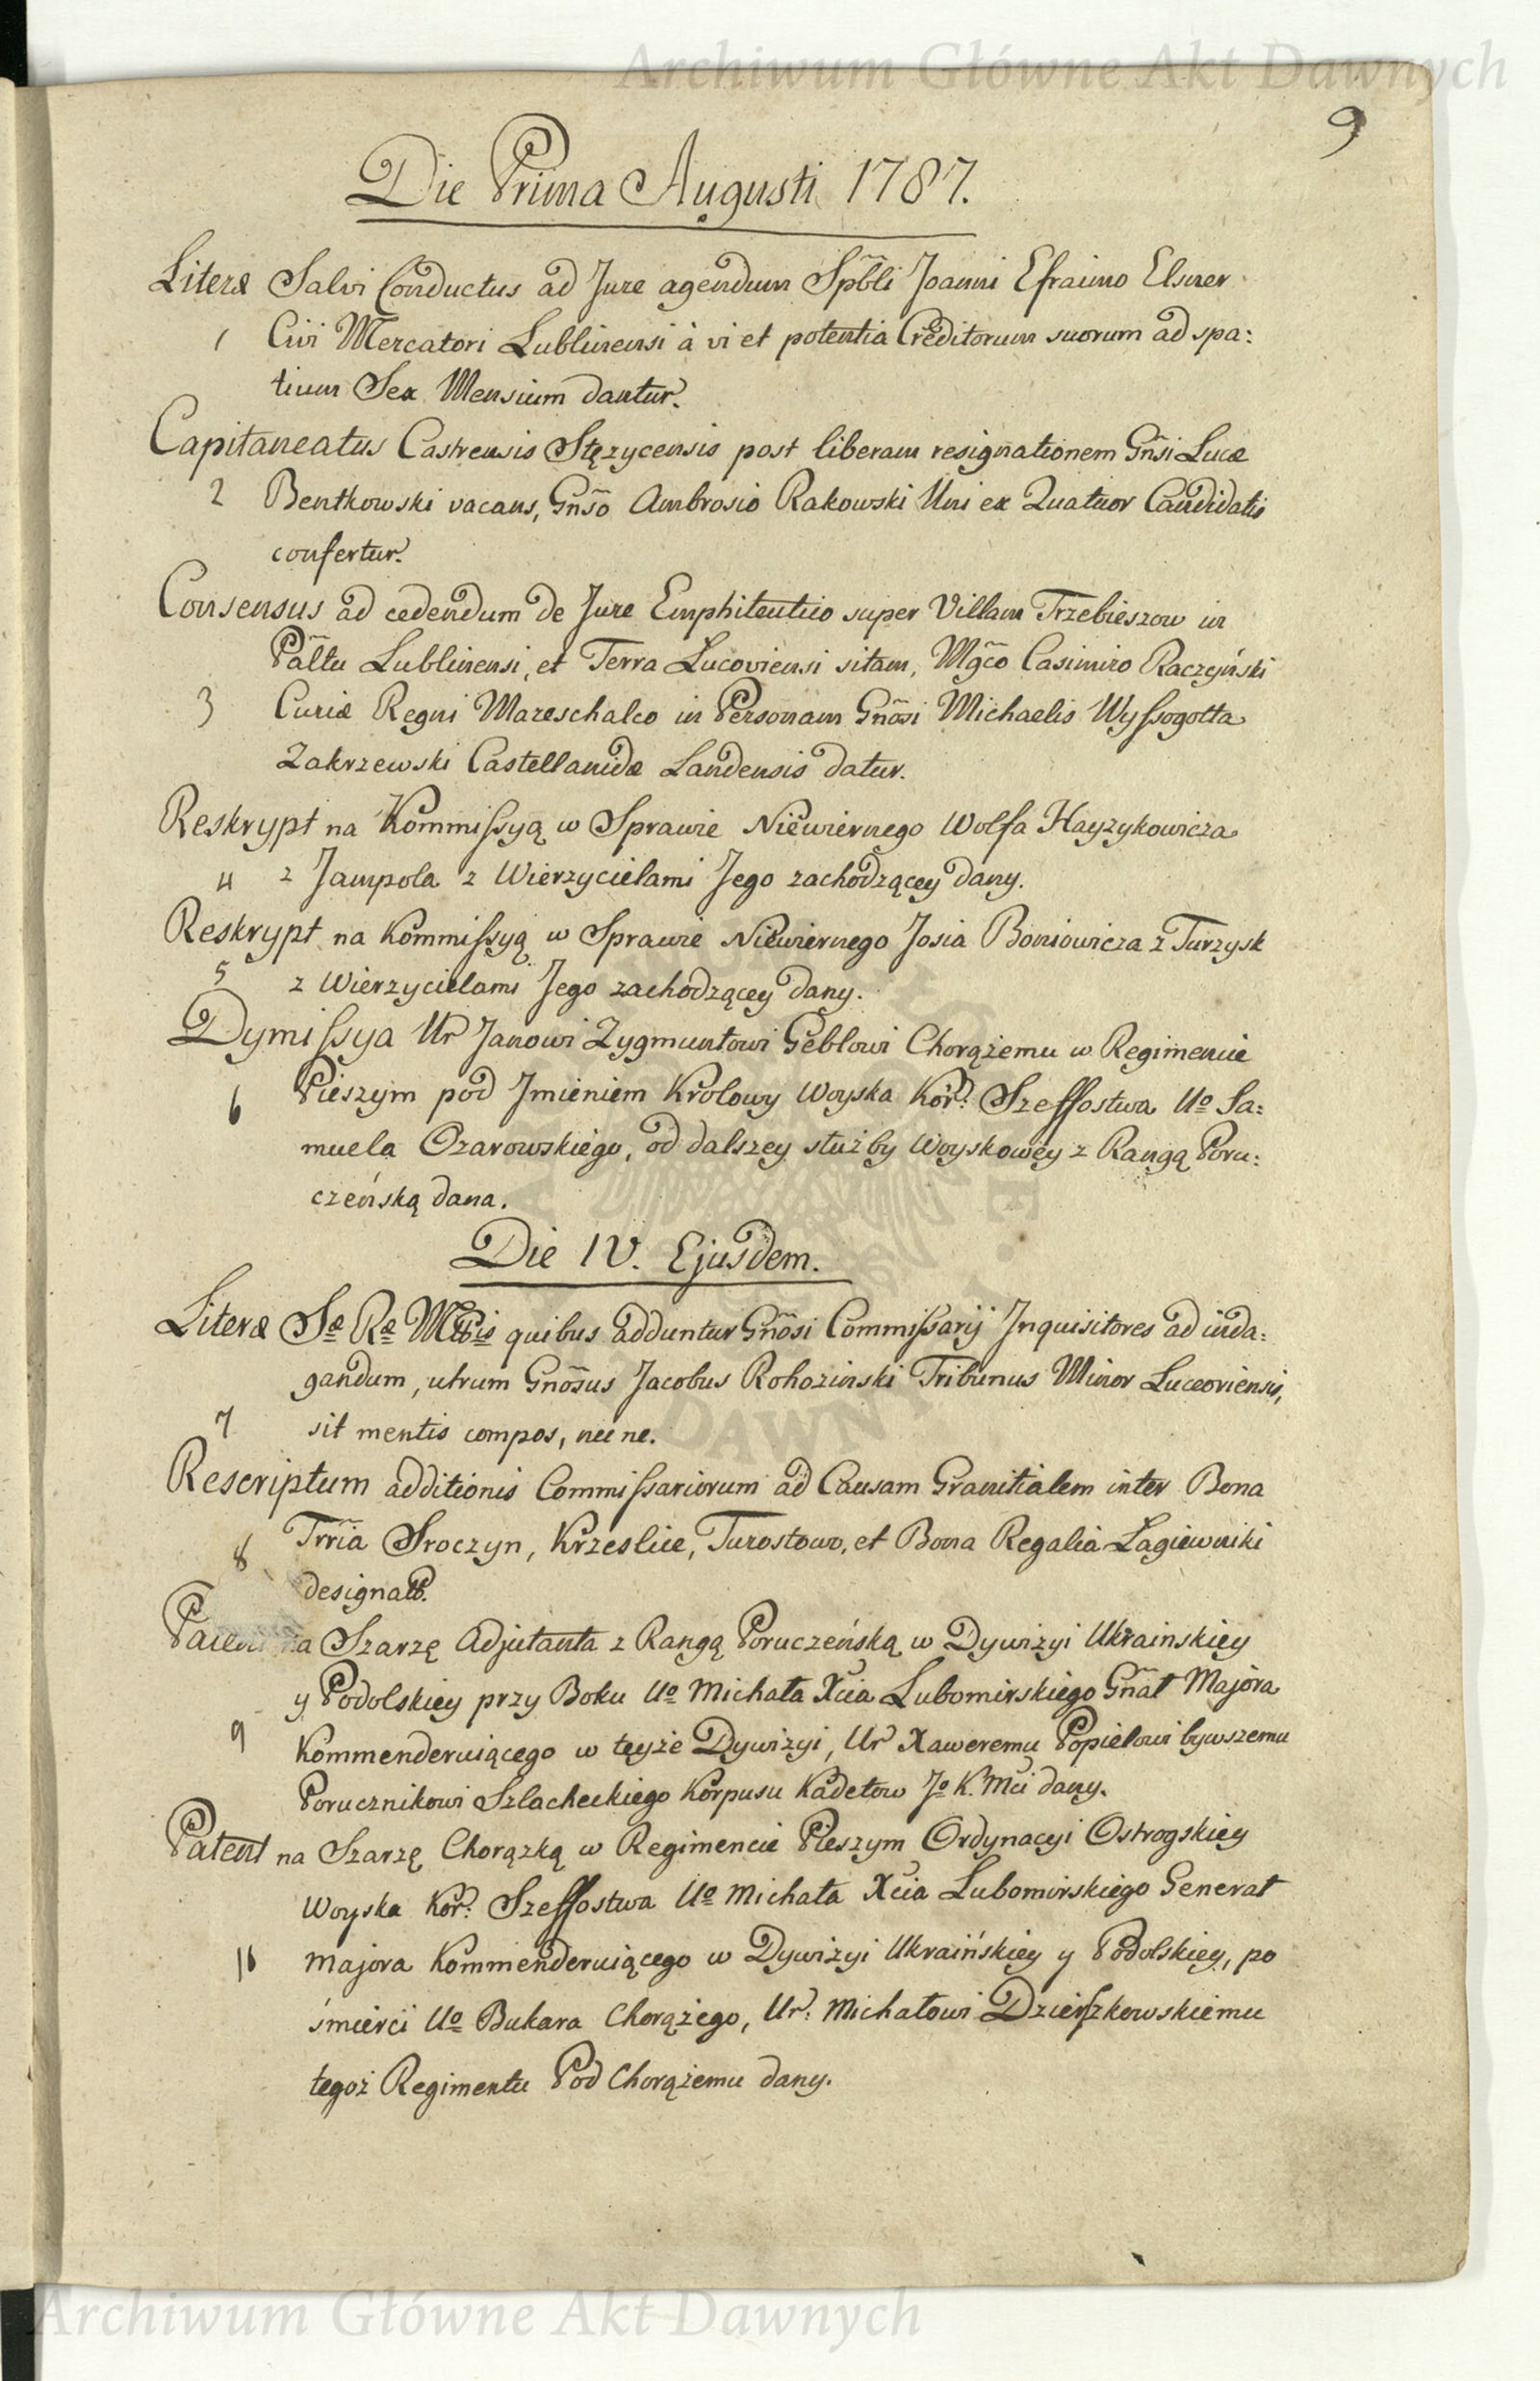 Archiwum Główne Akt Dawnych
9
Die Prima Augusti 1787.
Literæ Salvi Conductus ad Jure agendum Spbli Joanni Efraimo Elsner
1 Civi Mercatori Lublinensi à vi et potentia Creditorum suorum ad spa:
tium Sex Mensium dantur.
Capitaneatus Castrensis Stęzycensis post liberam resignationem Gñsi Lucæ
2 Bentkowski vacans, Gñso Ambrosio Rakowski Uni ex Quatuor Candidatis
confertur.
Consensus ad cedendum de Jure Emphiteutico super Villam Trzebieszow in
Pãltu Lublinensi, et Terra Lucoviensi sitam, Mgco Casimiro Raczyński
3 Curiæ Regni Mareschalco in Personam Gnõsi Michaelis Wyssogotta
Zakrzewski Castellanidæ Landensis datur.
Reskrypt na Kommissyą w Sprawie Niewiernego Wolfa Hayzykowicza
4 z Jampola z Wierzycielami Jego zachodzącey dany.
Reskrypt na Kommissyą w Sprawie Niewiernego Josia Boniowicza z Turzysk
5 z Wierzycielami Jego zachodzącey dany.
Dymissya Ur Janowi Zygmuntowi Geblowi Chorążemu w Regimencie
6 Pieszym pod Jmieniem Krolowy Woyska Kor: Szeffostwa Uo Sa:
muela Ozarowskiego, od dalszey służby Woyskowey z Rangą Poru:
czeńską dana.
Die IV. Ejusdem.
Literæ Sæ Ræ Mttis quibus adduntur Gnõsi Commissarij Inquisitores ad inda:
gandum, utrum Gnõsus Jacobus Rohozinski Tribunus Minor Luceoriensis,
7 sit mentis compos, nec ne.
Rescriptum additionis Commissariorum ad Causam Granitialem inter Bona
8 Trria Sroczyn, Krzeslice, Turostowo, et Bona Regalia Łagiewniki
designat.
Patent na Szarzę Adjutanta z Rangą Poruczeńską w Dywizyi Ukrainskiey
y Podolskiey przy Boku Uo Michała Xcia Lubomirskiego Gñał Majora
9 Kommenderuiącego w teyże Dywizyi, Ur Xaweremu Popielowi bywszemu
Porucznikowi Szlacheckiego Korpusu Kadetow Jo K. Mci dany.
Patent na Szarzę Chorązką w Regimencie Pieszym Ordynacyi Ostrogskiey
Woyska Kor: Szeffostwa Uo Michała Xcia Lubomirskiego Generał
10 Majora Kommenderuiącego w Dywizyi Ukraińskiey y Podolskiey, po
śmierci Uo Bukara Chorążego, Ur: Michałowi Dzierszkowskiemu
tegoż Regimentu Pod Chorążemu dany.
Archiwum Główne Akt Dawnych